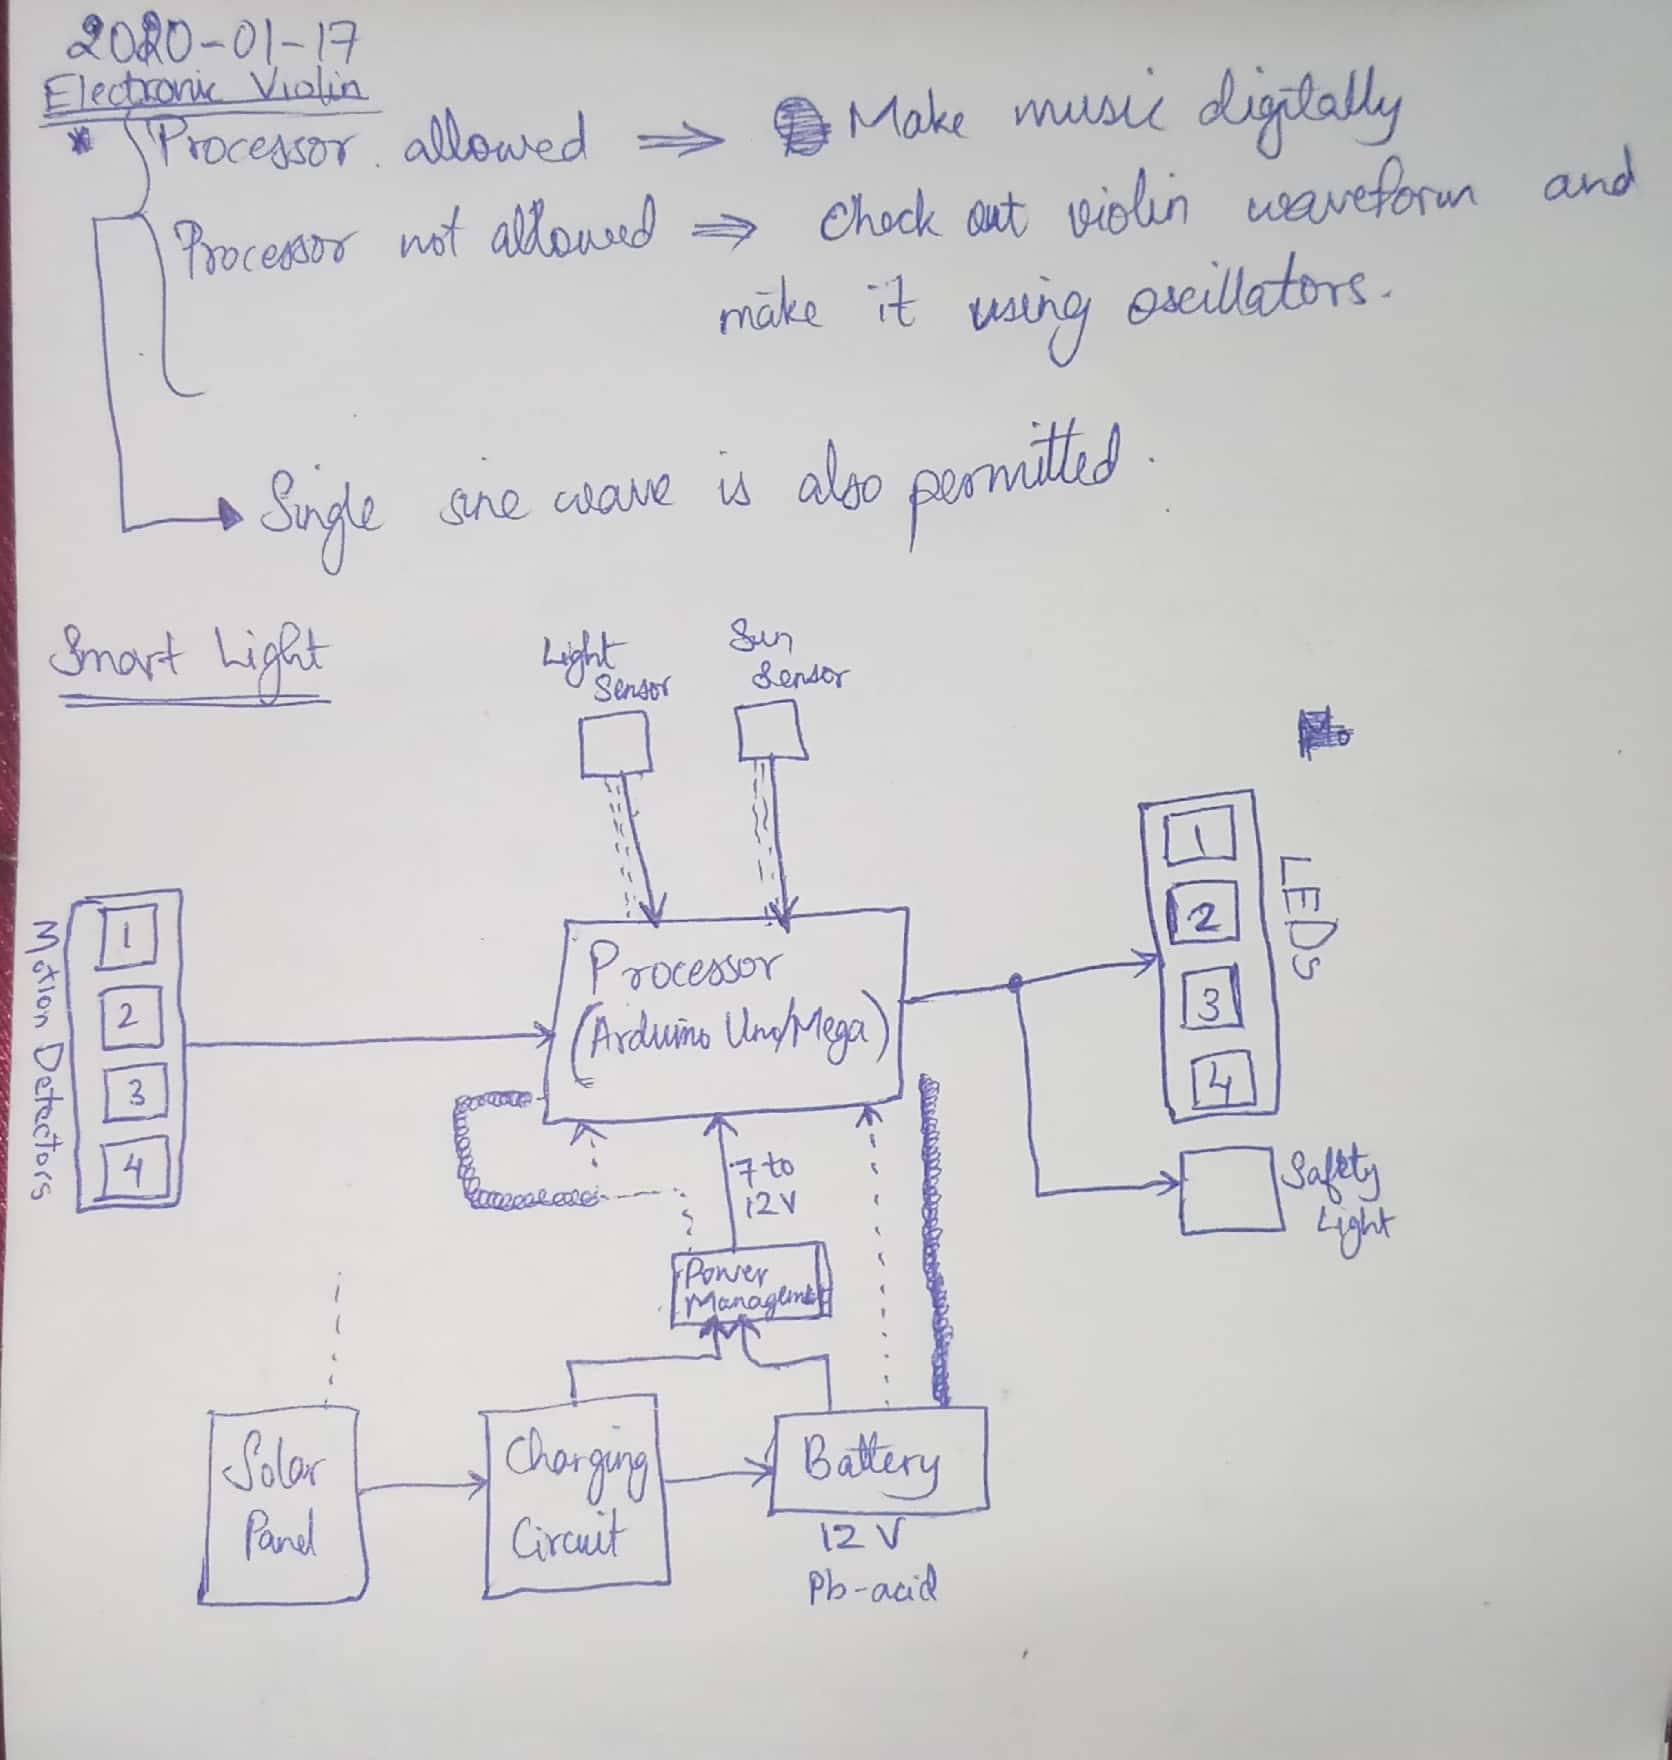 2020-01-17
Electronic Violin
* Processor allowed ⇒ Make music digitally
Processor not allowed ⇒ Check out violin waveform and
make it using oscillators.
Single sine wave is also permitted.
Smart Light
Light
Sensor
Sun
Sensor
Motion Detectors
1
2
3
4
Processor
(Arduino Uno/Mega)
1
2
3
4
LEDs
Safety
Light
7 to
12V
Power
Management
Solar
Panel
Charging
Circuit
Battery
12 V
Pb-acid